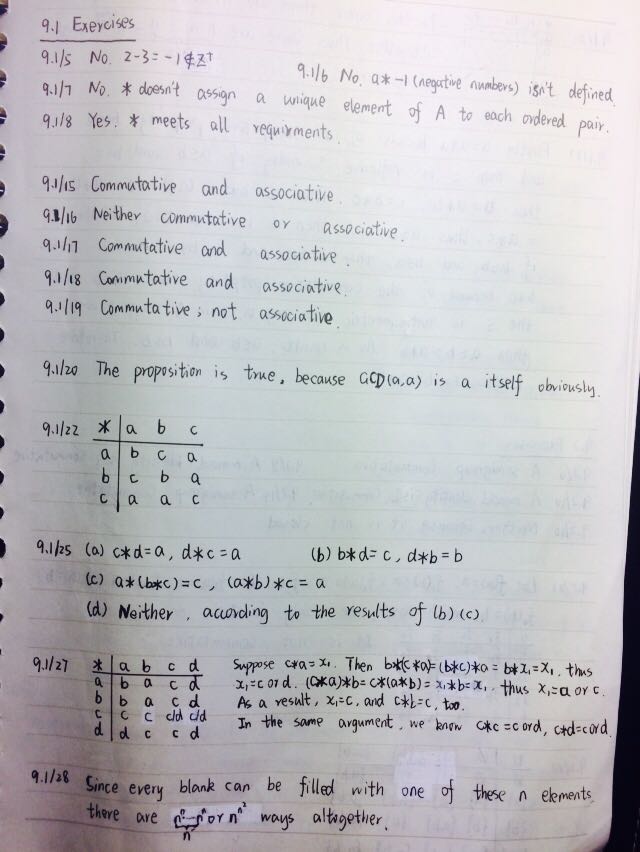 9.1 Exercises
9.1/5 No. 2-3=-1∉Z⁺
9.1/6 No. a*-1 (negative numbers) isn't defined.
9.1/7 No. * doesn't assign a unique element of A to each ordered pair.
9.1/8 Yes. * meets all requirments.
9.1/15 Commutative and associative.
9.1/16 Neither commutative or associative.
9.1/17 Commutative and associative.
9.1/18 Commutative and associative.
9.1/19 Commutative; not associative.
9.1/20 The proposition is true, because GCD(a,a) is a itself obviously.
9.1/22 * | a b c
a | b c a
b | c b a
c | a a c
9.1/25 (a) c*d=a, d*c=a (b) b*d=c, d*b=b
(c) a*(b*c)=c, (a*b)*c=a
(d) Neither, according to the results of (b) (c)
9.1/27 * | a b c d
a | a b c d
b | b a c d
c | c c c/d c/d
d | d c c d
Suppose c*a=x₁. Then b*(c*a)=(b*c)*a=b*x₁=x₁, thus
x₁=c or d. (c*a)*b=c*(a*b)=x₁*b=x₁, thus x₁=a or c.
As a result, x₁=c, and c*b=c, too.
In the same argument, we know c*c=c or d, c*d=c or d.
9.1/28 Since every blank can be filled with one of these n elements
there are or n^n² ways altogether.